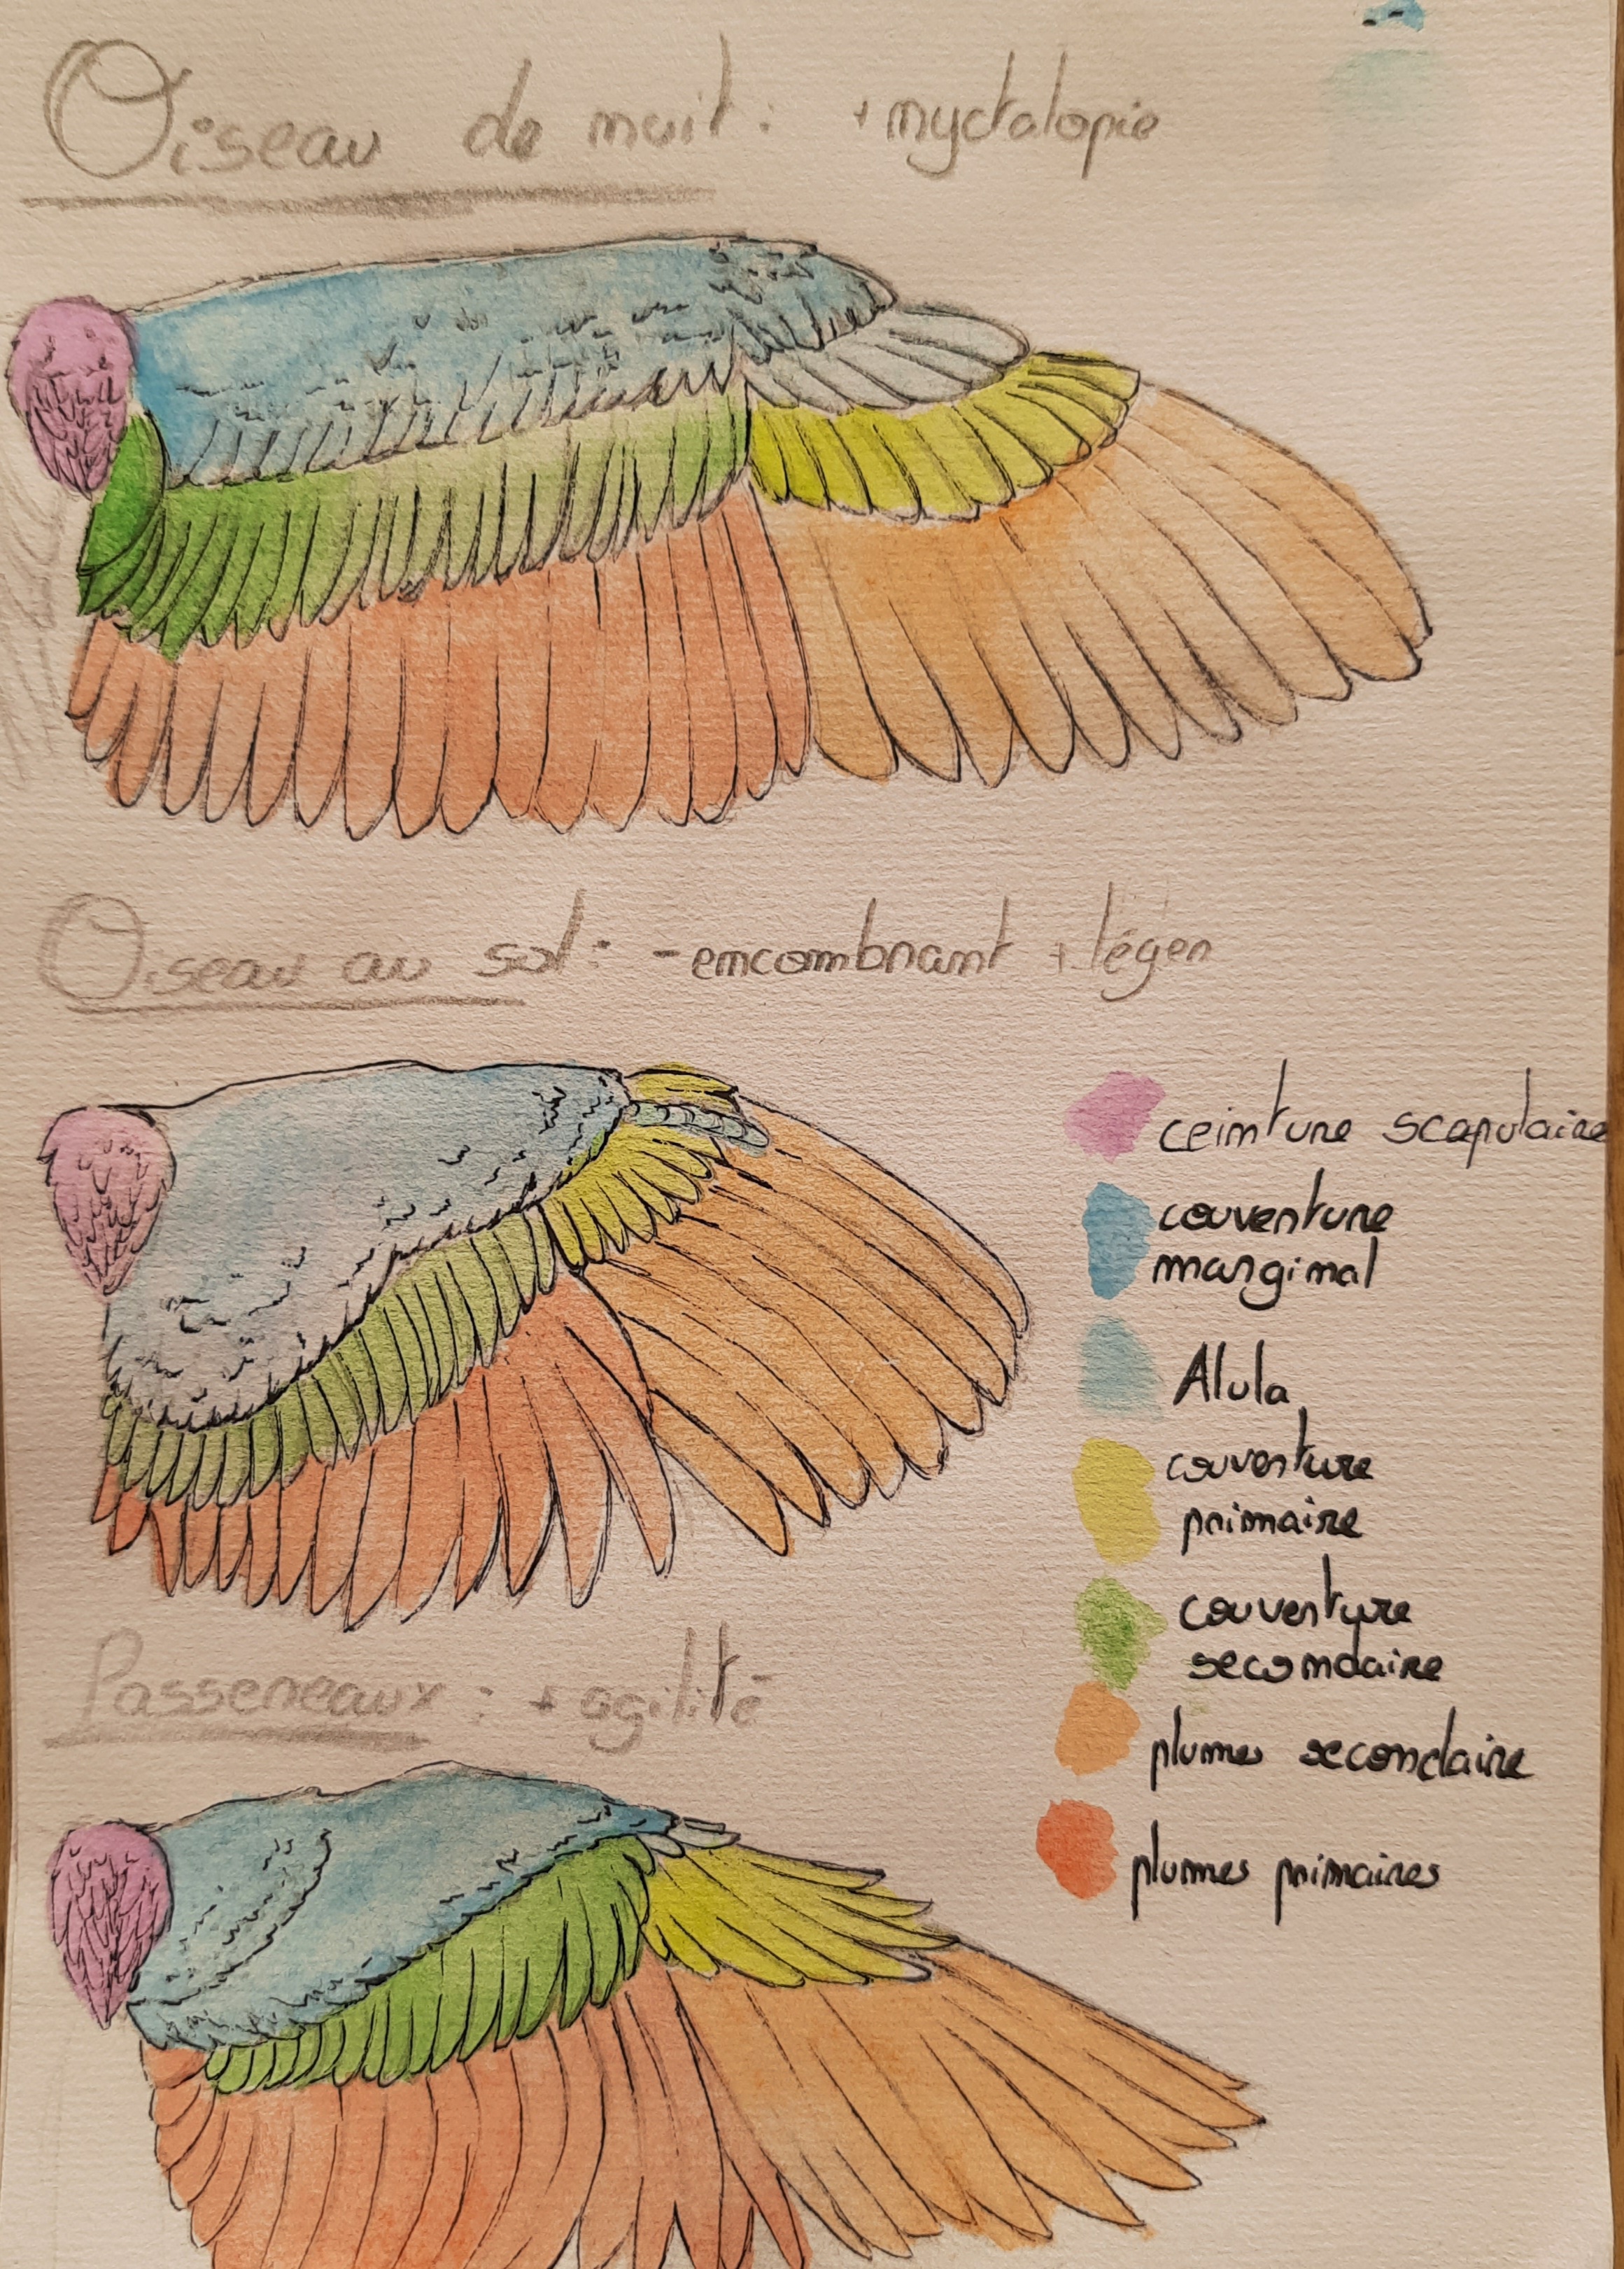 Oiseau de nuit : + nyctalopie
Oiseau au sol : - encombrant + léger
ceinture scapulaire
couverture
marginal
Alula
couverture
primaire
couverture
secondaire
plumes secondaire
plumes primaires
Passereaux : + agilité